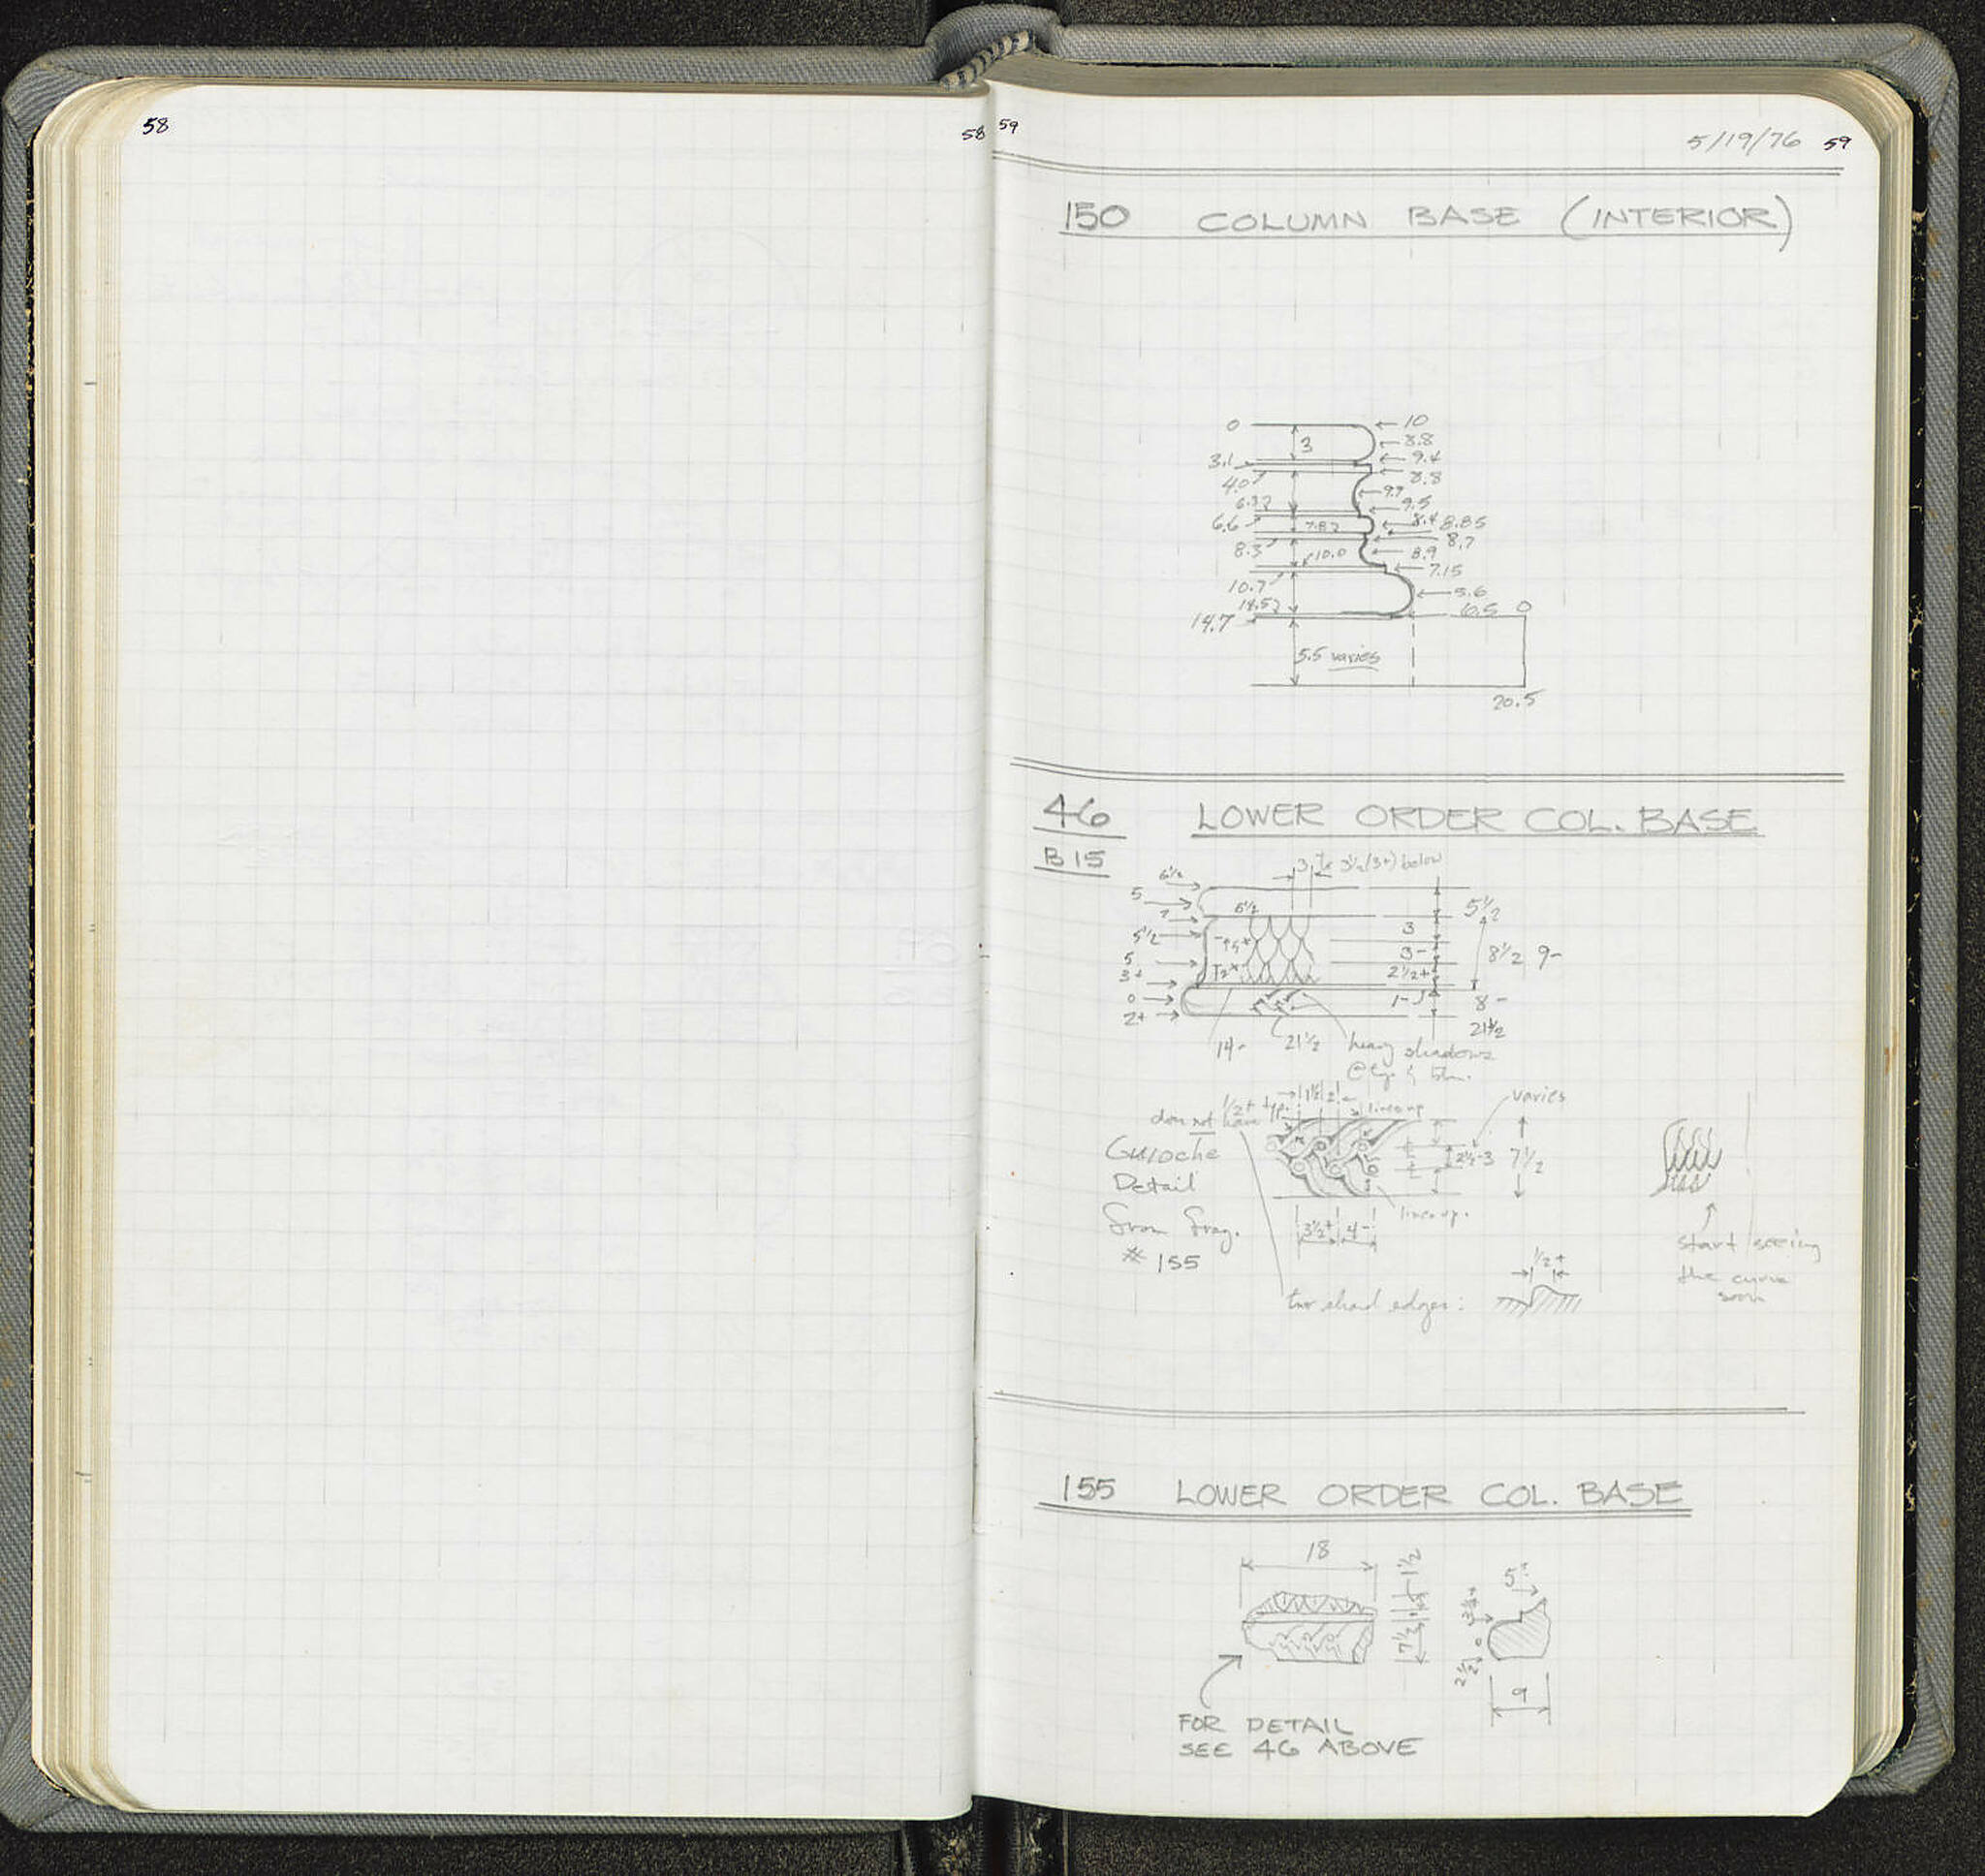 58
58
59
5/19/76 59
150 COLUMN BASE (INTERIOR)
0
3
10
8.8
3.1
9.4
4.0
8.8
6.3
9.9
9.5
6.6
7.8
8.4 8.85
8.3
10.0
8.7
8.9
7.15
10.7
5.6
14.5
6.5 0
14.7
5.5 varies
20.5
46 LOWER ORDER COL. BASE
B15
3 3½(3+) below
6½
5
7
6½
5½
5½
3
5
3-
8½ 9-
3+
2½+
0
1-
8-
2+
21½
14-
21½
heavy shadows
1½ 2
varies
½+ typ.
line up
does not have
Guioche
Detail
from frag.
# 155
2½-3
7½
line up.
3½+ 4-
start seeing
the curve
soon
½+
two shad edges:
155 LOWER ORDER COL. BASE
18
1½
7½
5+
3¾+
0
2½
9
FOR DETAIL
SEE 46 ABOVE